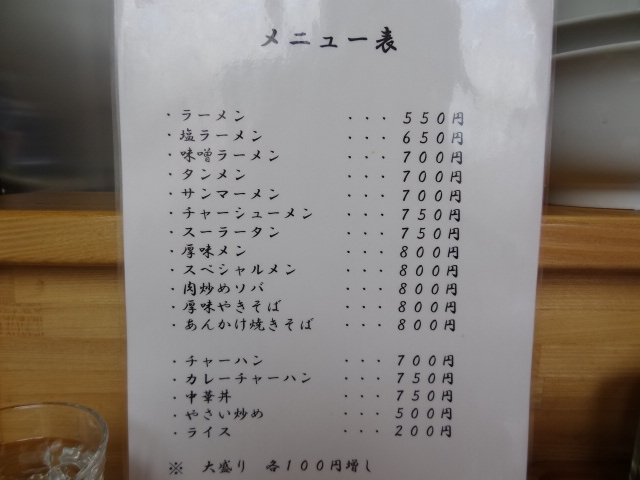 メニュー表
・ラーメン ・・・５５０円
・塩ラーメン ・・・６５０円
・味噌ラーメン ・・・７００円
・タンメン ・・・７００円
・サンマーメン ・・・７００円
・チャーシューメン ・・・７５０円
・スーラータン ・・・７５０円
・厚味メン ・・・８００円
・スペシャルメン ・・・８００円
・肉炒めソバ ・・・８００円
・厚味やきそば ・・・８００円
・あんかけ焼きそば ・・・８００円
・チャーハン ・・・７００円
・カレーチャーハン ・・・７５０円
・中華丼 ・・・７５０円
・やさい炒め ・・・５００円
・ライス ・・・２００円
※ 大盛り 各１００円増し